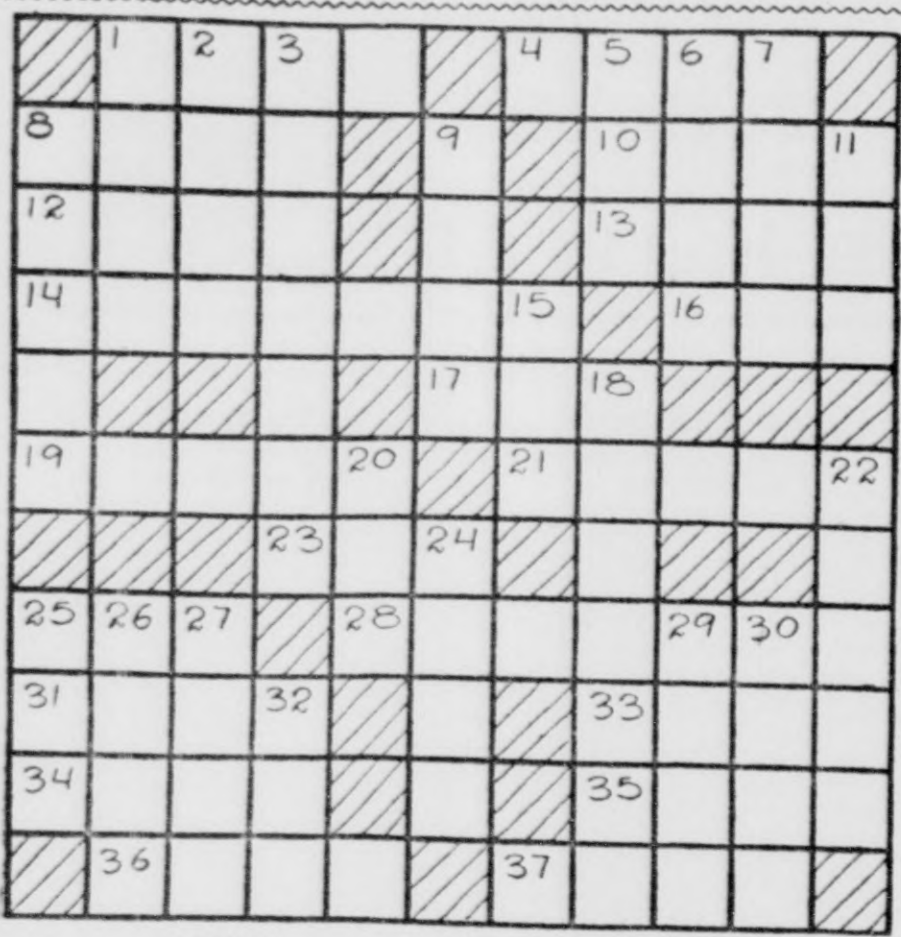 1 2 3 4 5 6 7
8 9 10 11
12 13
14 15 16
17 18
19 20 21 22
23 24
25 26 27 28 29 30
31 32 33
34 35
36 37